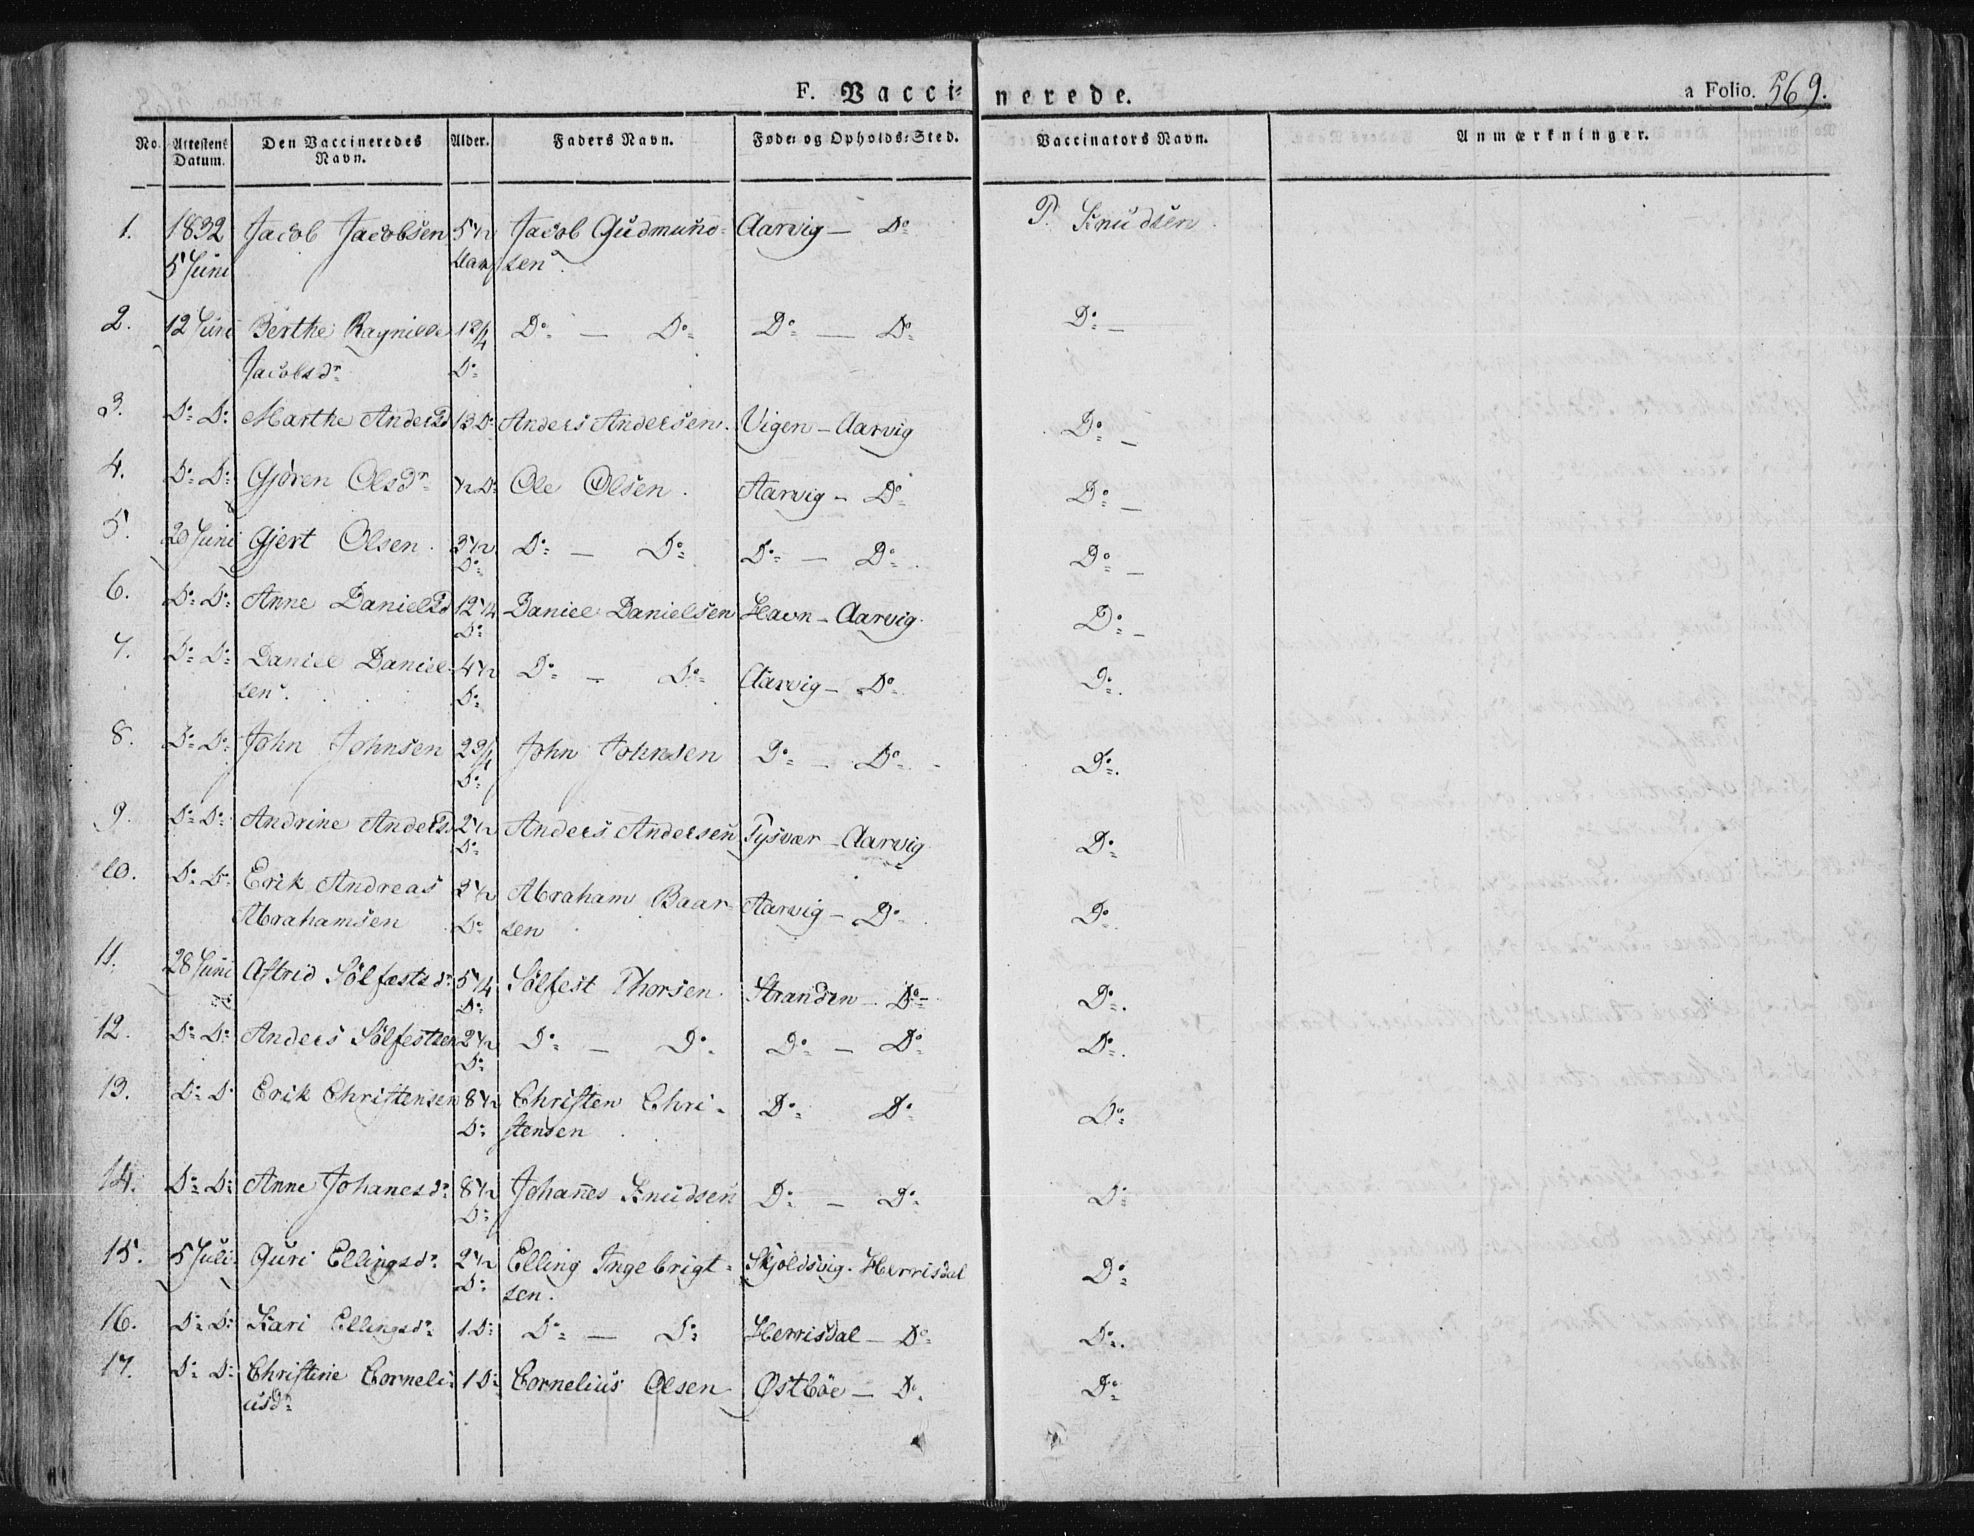 F. Vacci= nerede. a Folio. 569.
No. Attestens Datum. Den Vaccineredes Navn. Alder. Faders Navn. Føde= og Opholds=Sted. Vaccinators Navn. Anmærkninger.
1. 1832 Jacob Jacobsen 5 1/2 Jacob Gudmund= Aarvig — Do P. Knudsen.
5 Juni Aar sen
2. 12 Juni Berthe 1 3/4 Do — Do Do — Do Do —
Jacobsdr Do
3. Do Do Marthe Andersd 13 Do Anders Andersen. Vigen — Aarvig Do —
4. Do Do Gjøren Olsdr 1/2 Do Ole Olsen. Aarvig — Do Do —
5. 20 Juni Gjert Olsen. 3 1/2 Do — Do Do — Do Do —
Do
6. Do Do Anne Danielsd 12 1/4 Daniel Danielsen Havn — Aarvig. Do —
Do
7. Do Do Daniel Daniel= 4 1/2 Do — Do Aarvig — Do Do.
sen. Do
8. Do Do John Johnsen 2 3/4 John Johnsen Do — Do Do.
Do
9. Do Do Andrine Andersd 2 1/2 Anders Andersen Tysvær — Aarvig Do
Do
10. Do Do Erik Andreas 3 1/2 Abraham Baar= Aarvig — Do Do.
Abrahamsen Do sen
11. 28 Juni Astrid Sølfestsd. 5 1/4 Sølfest Thorsen. Stranden — Do Do.
Do
12. Do Do Anders Sølfestsen 2 1/2 Do — Do Do — Do Do.
Do
13. Do Do Erik Christensen 8 1/2 Christen Chri= Do Do Do
Do stensen
14. Do Do Anne Johanesdr 8 1/2 Johanes Knudsen Do — Do Do
Do
15. 5 Juli Guri Ellingsdr 2 1/2 Elling Ingebrigt= Skjoldsvig. Herrisdal Do
Do sen.
16. Do Do Kari Ellingsdr 1 Do Do — Do Herrisdal — Do Do.
17. Do Do Christine Corneli= 1 Do Cornelius Olsen Østbøe — Do Do
usdr